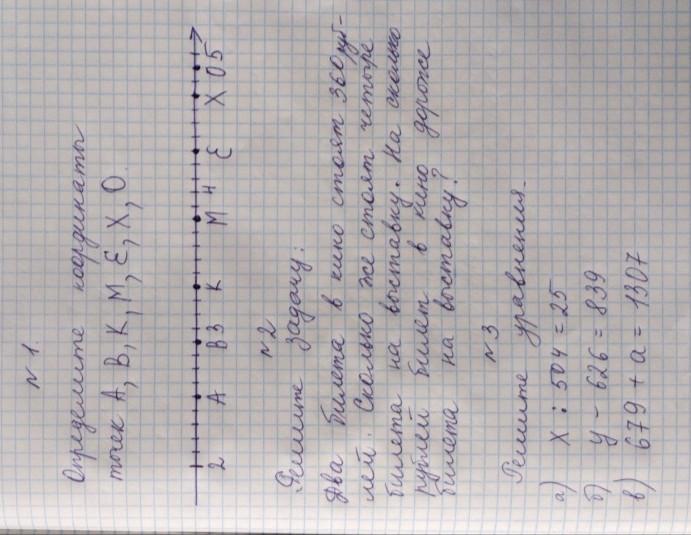 №1.
Определите координаты
точек А, В, К, М, Е, Х, О.
2 А В 3 К М 4 Е Х О 5
№2
Решите задачу:
Два билета в кино стоят 360 руб-
лей. Сколько же стоят четыре
билета на выставку. На сколько
рублей билет в кино дороже
билета на выставку?
№3
Решите уравнения.
а) х : 504 = 25
б) у - 626 = 839
в) 679 + а = 1307